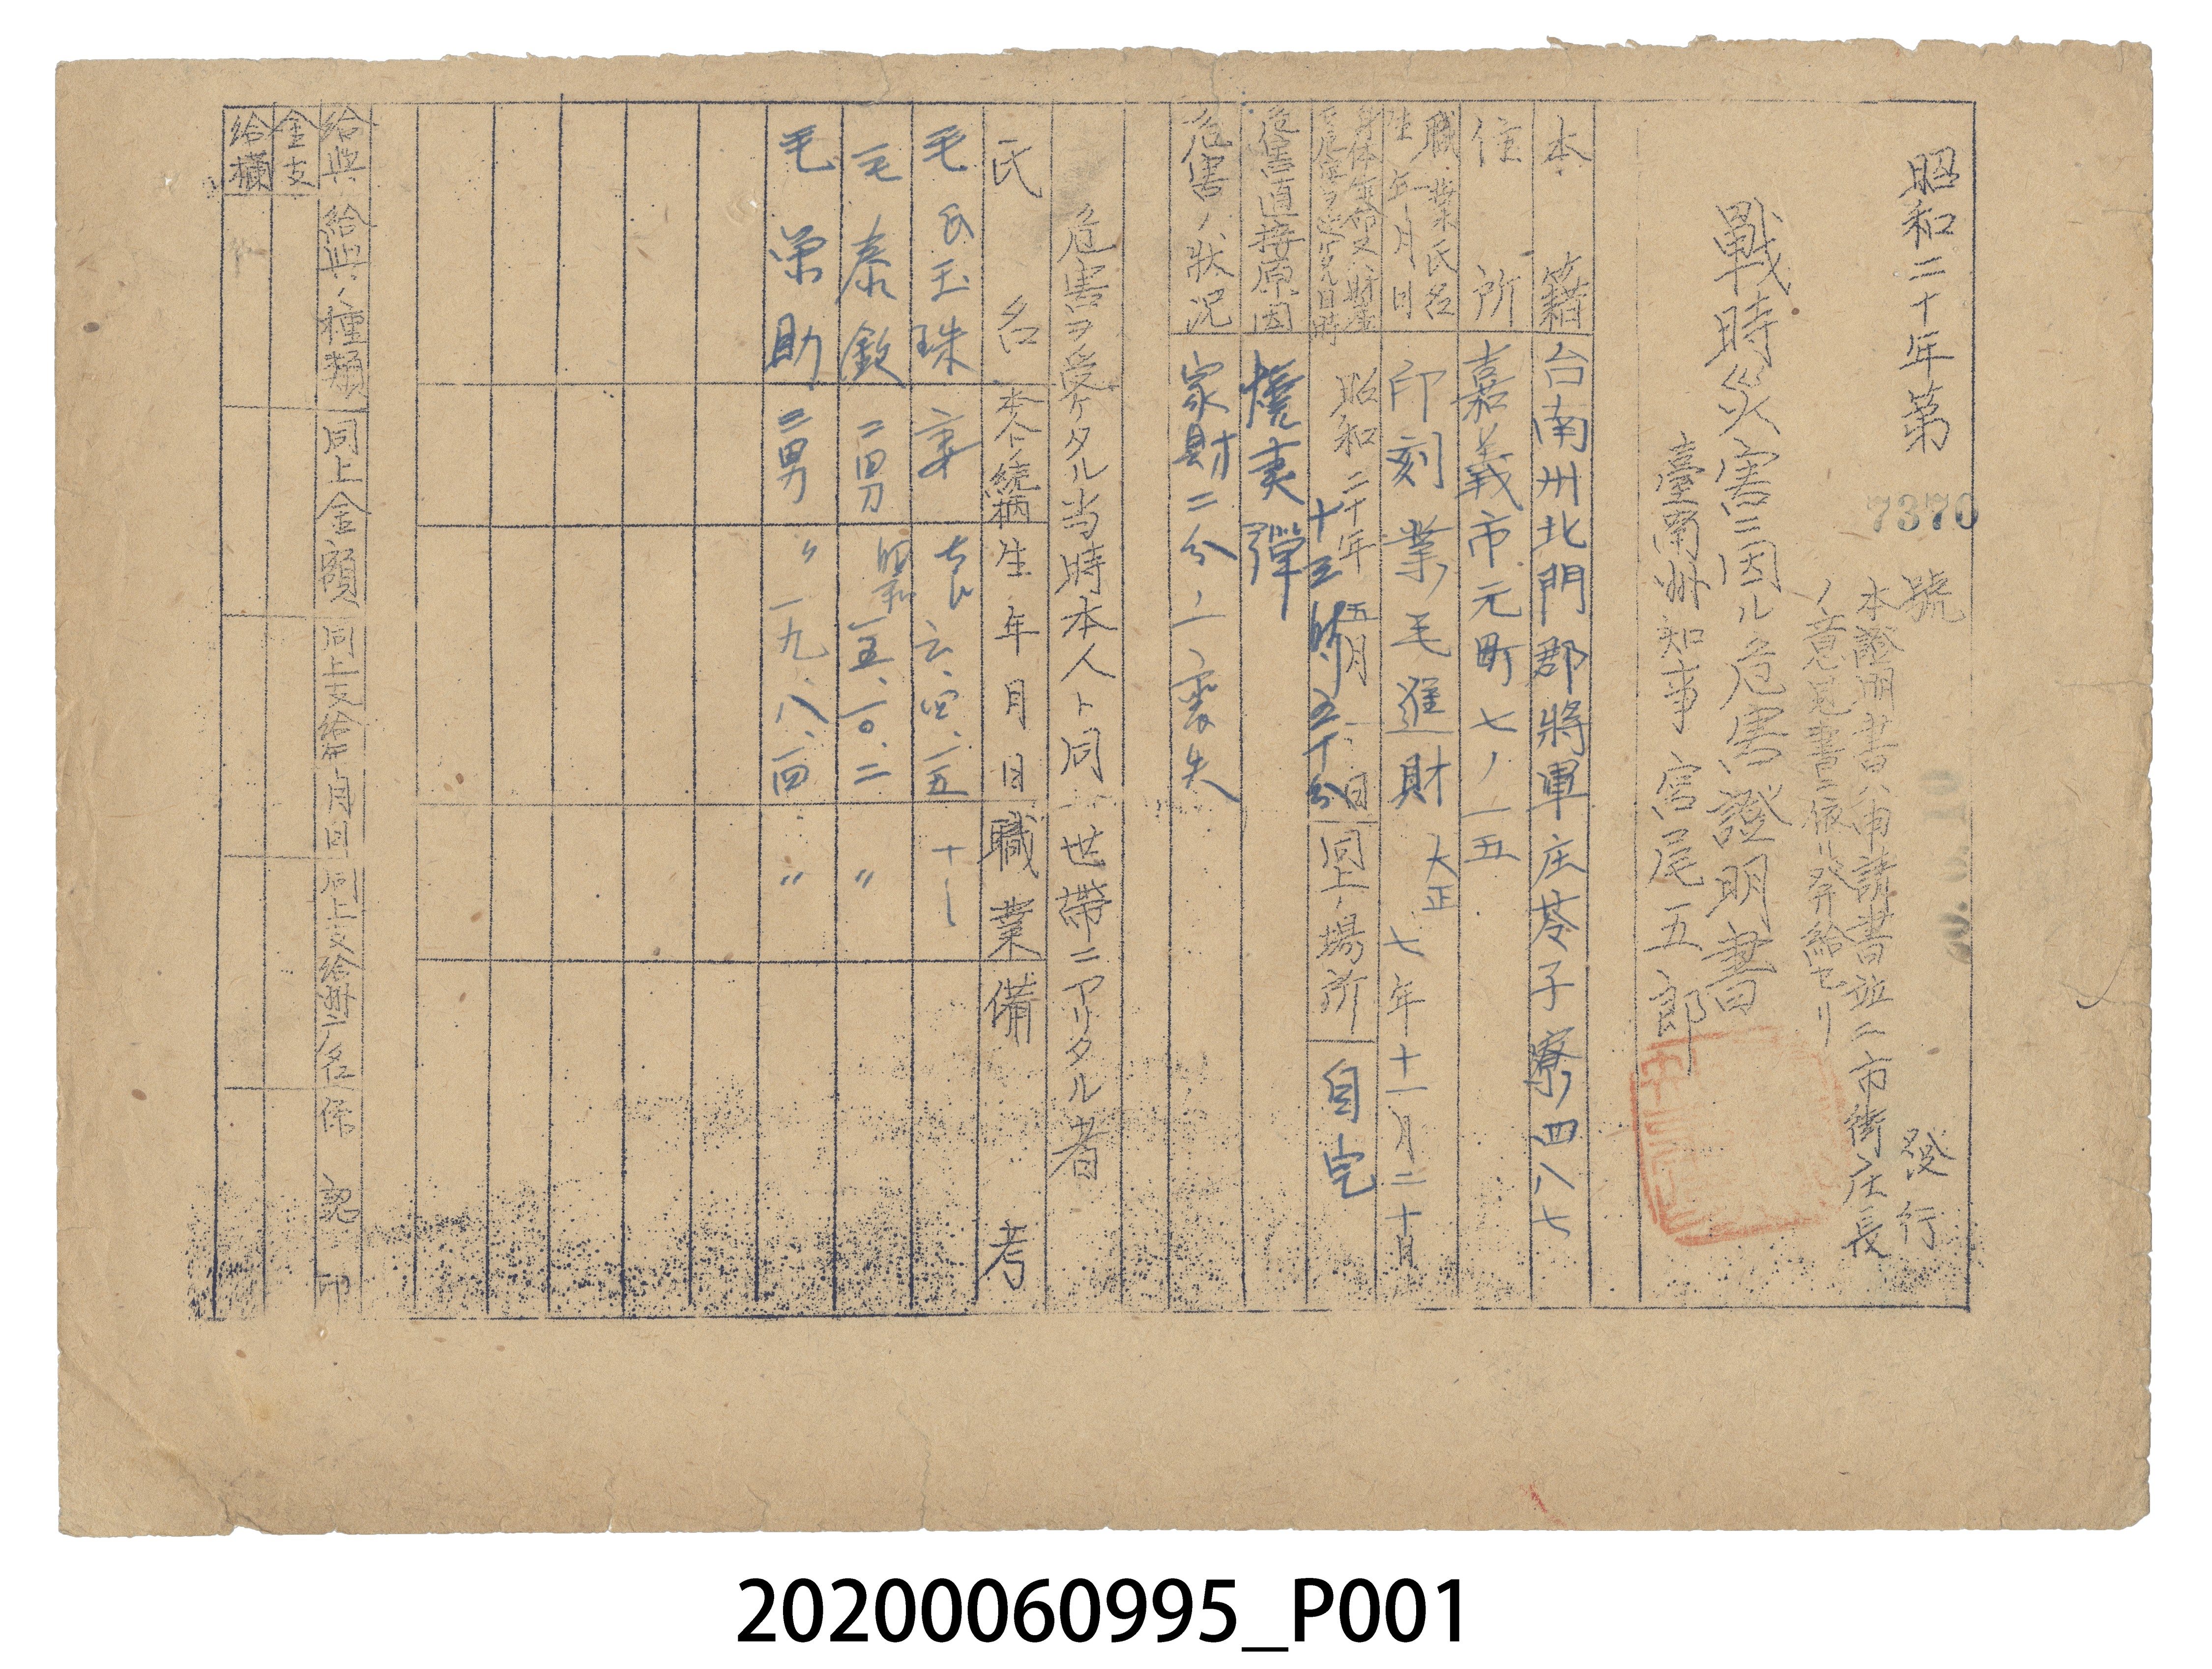 昭和二十年第 7370 號 發行
本證明書ハ申請書並ニ市街庄長
ノ意見書ニ依リ發給セリ
戰時災害ニ因ル危害證明書
臺南州知事 宮尾五郎
本籍 台南州北門郡將軍庄苓子寮ノ四八七
住所 嘉義市元町七ノ一五
職業氏名 印刻業 毛進財
生年月日 大正七年十一月二十日
昭和二十年五月 日 十三時五十分
同上ノ場所 自宅
危害直接原因 燒夷彈
危害ノ狀況 家財二分ノ一喪失
危害ヲ受ケタル当時本人ト同一世帶ニアリタル者
氏名 本人トノ続柄 生年月日 職業 備考
毛氏玉珠 妻 六、四、一五 ナシ
毛泰欽 二男 昭和一五、一〇、二 〃
毛栄助 三男 〃一九、八、四 〃
給與 給與ノ種類 同上金額 同上支給年月日 同上支給州廳名 係認印
金支
給欄
20200060995_P001